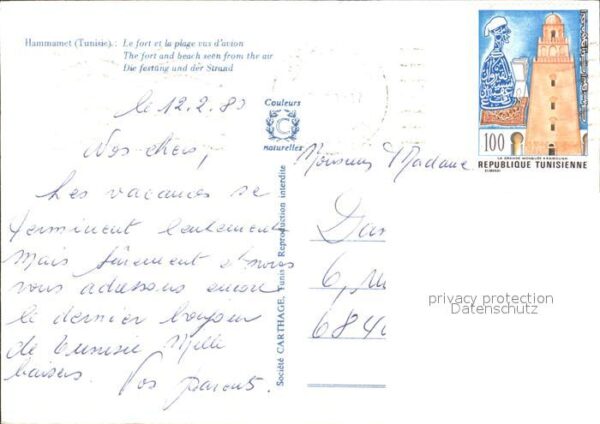 Hammamet (Tunisie).: Le fort et la plage vus d'avion
The fort and beach seen from the air
Die festung und der Strand
le 12.2.80
Nos chers,
Les vacances se
terminent lentement
mais sûrement et nous
vous adressons encore
le dernier bonjour
de Tunisie Mille
baisers. Vos parents.
Couleurs
C
naturelles
Société CARTHAGE, Tunis - Reproduction interdite
Monsieur Madame
6,
684
100
LA GRANDE MOSQUEE KAIROUAN
REPUBLIQUE TUNISIENNE
privacy protection
Datenschutz